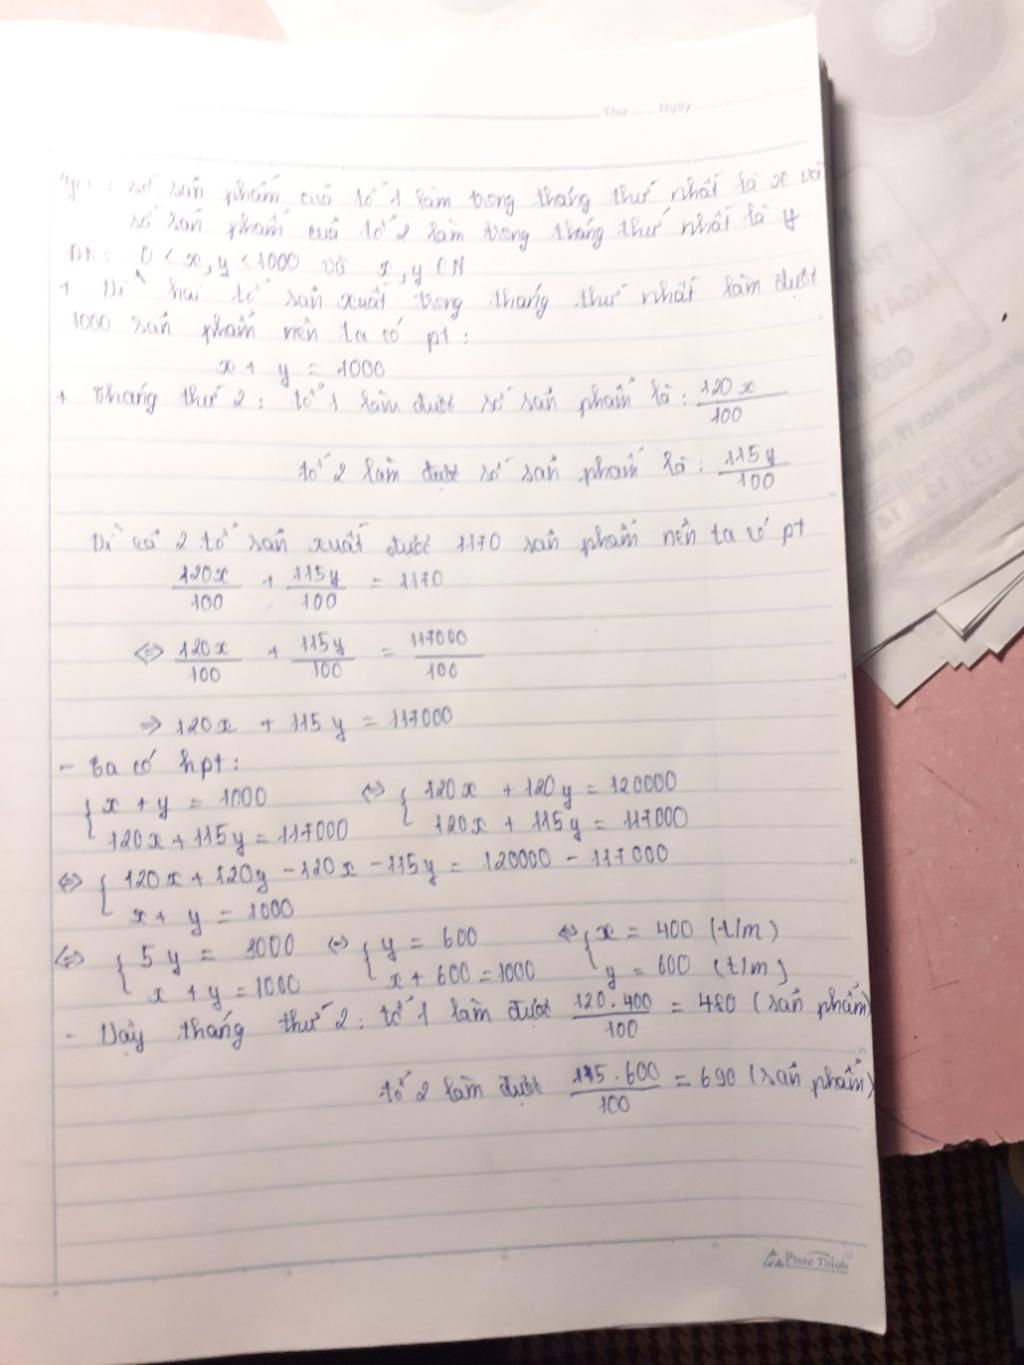 Thứ ...... Ngày ..........
số sản phẩm của tổ 1 làm trong tháng thứ nhất là x và
số sản phẩm của tổ 2 làm trong tháng thứ nhất là y
ĐK: 0 < x, y < 1000 và x, y ∈ N
+ Vì hai tổ sản xuất trong tháng thứ nhất làm được
1000 sản phẩm nên ta có pt:
x + y = 1000
+ Tháng thứ 2: tổ 1 làm được số sản phẩm là: 120x/100
tổ 2 làm được số sản phẩm là: 115y/100
Vì cả 2 tổ sản xuất được 1170 sản phẩm nên ta có pt
120x/100 + 115y/100 = 1170
⇔ 120x/100 + 115y/100 = 117000/100
⇒ 120x + 115y = 117000
- Ta có hpt:
{ x + y = 1000 ⇔ { 120x + 120y = 120000
120x + 115y = 117000 120x + 115y = 117000
⇔ { 120x + 120y - 120x - 115y = 120000 - 117000
x + y = 1000
⇔ { 5y = 3000 ⇔ { y = 600 ⇔ { x = 400 (t/m)
x + y = 1000 x + 600 = 1000 y = 600 (t/m)
- Vậy tháng thứ 2: tổ 1 làm được 120.400/100 = 480 (sản phẩm)
tổ 2 làm được 115.600/100 = 690 (sản phẩm)
Phúc Thịnh